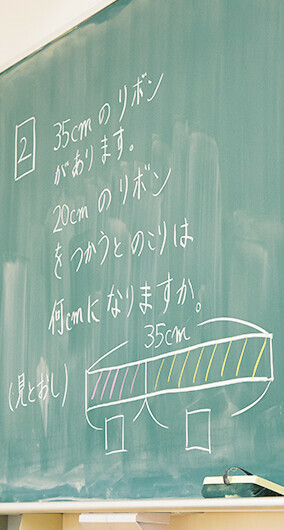 2
35cmのリボン
があります。
20cmのリボン
をつかうとのこりは
何cmになりますか。
35cm
(見とおし)